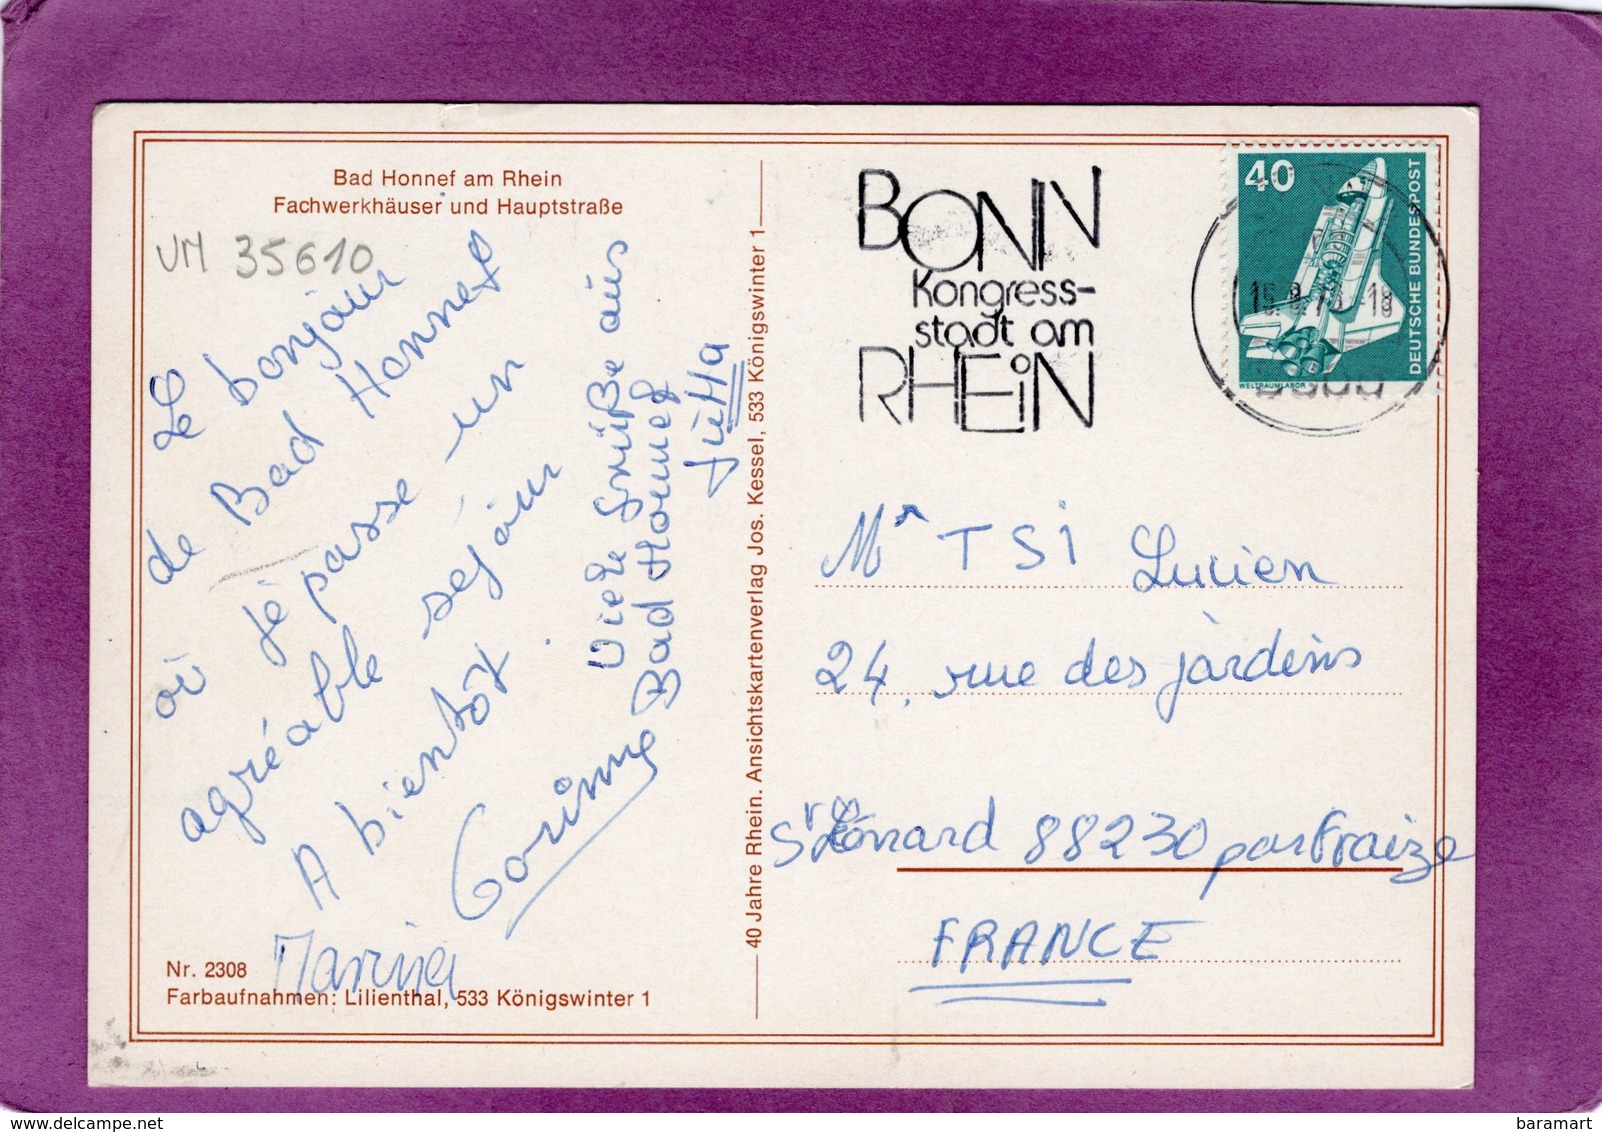 Bad Honnef am Rhein
Fachwerkhäuser und Hauptstraße
VM 35610
Le bonjour
de Bad Honnef
où je passe un
agréable séjour
A bientôt
Corinne
Marina
Viele Grüße aus
Bad Honnef
Jutta
Nr. 2308
Farbaufnahmen: Lilienthal, 533 Königswinter 1
40 Jahre Rhein. Ansichtskartenverlag Jos. Kessel, 533 Königswinter 1
BONN
Kongress-
stadt am
RHEiN
40
DEUTSCHE BUNDESPOST
WELTRAUMLABOR
Mr TSI Lucien
24, rue des jardins
St Léonard 88230 par Fraize
FRANCE
baramart